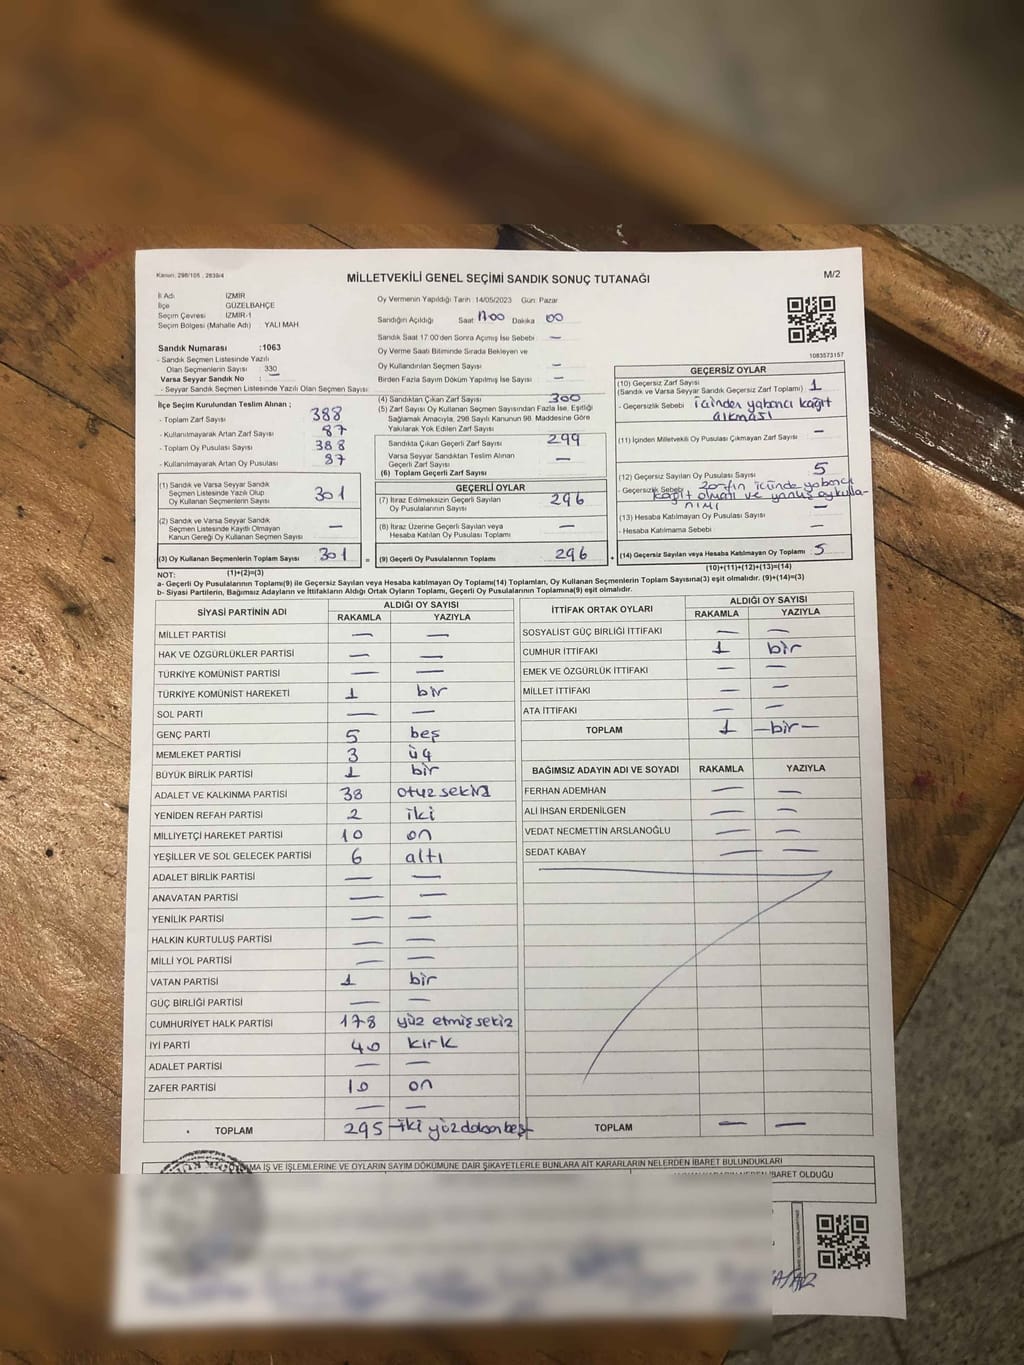 Kanun: 298/105 , 2839/4
MİLLETVEKİLİ GENEL SEÇİMİ SANDIK SONUÇ TUTANAĞI
M/2
İl Adı İZMİR
İlçe GÜZELBAHÇE
Seçim Çevresi İZMİR-1
Seçim Bölgesi (Mahalle Adı) YALI MAH
Sandık Numarası :1063
- Sandık Seçmen Listesinde Yazılı
Olan Seçmenlerin Sayısı : 330
Varsa Seyyar Sandık No : —
- Seyyar Sandık Seçmen Listesinde Yazılı Olan Seçmen Sayısı
İlçe Seçim Kurulundan Teslim Alınan ;
- Toplam Zarf Sayısı 388
- Kullanılmayarak Artan Zarf Sayısı 87
- Toplam Oy Pusulası Sayısı 388
- Kullanılmayarak Artan Oy Pusulası 87
(1) Sandık ve Varsa Seyyar Sandık
Seçmen Listesinde Yazılı Olup
Oy Kullanan Seçmenlerin Sayısı 301
(2) Sandık ve Varsa Seyyar Sandık
Seçmen Listesinde Kayıtlı Olmayan
Kanun Gereği Oy Kullanan Seçmen Sayısı —
(3) Oy Kullanan Seçmenlerin Toplam Sayısı 301 =
(1)+(2)=(3)
Oy Vermenin Yapıldığı Tarih :14/05/2023 Gün: Pazar
Sandığın Açıldığı Saat 17.00 Dakika 00
Sandık Saat 17:00'den Sonra Açılmış İse Sebebi —
Oy Verme Saati Bitiminde Sırada Bekleyen ve
Oy Kullandırılan Seçmen Sayısı —
Birden Fazla Sayım Döküm Yapılmış İse Sayısı —
(4) Sandıktan Çıkan Zarf Sayısı 300
(5) Zarf Sayısı Oy Kullanan Seçmen Sayısından Fazla İse, Eşitliği
Sağlamak Amacıyla, 298 Sayılı Kanunun 98. Maddesine Göre
Yakılarak Yok Edilen Zarf Sayısı
Sandıkta Çıkan Geçerli Zarf Sayısı 299
Varsa Seyyar Sandıktan Teslim Alınan
Geçerli Zarf Sayısı —
(6) Toplam Geçerli Zarf Sayısı
GEÇERLİ OYLAR
(7) İtiraz Edilmeksizin Geçerli Sayılan
Oy Pusulasının Sayısı 296
(8) İtiraz Üzerine Geçerli Sayılan veya
Hesaba Katılan Oy Pusulası Toplamı —
(9) Geçerli Oy Pusulalarının Toplamı 296 +
1083573157
GEÇERSİZ OYLAR
(10) Geçersiz Zarf Sayısı 1
(Sandık ve Varsa Seyyar Sandık Geçersiz Zarf Toplamı)
- Geçersizlik Sebebi içinden yabancı kağıt
çıkması
(11) İçinden Milletvekili Oy Pusulası Çıkmayan Zarf Sayısı —
(12) Geçersiz Sayılan Oy Pusulası Sayısı 5
- Geçersizlik Sebebi zarfın içinde yabancı
kağıt olması ve yanlış oy kulla-
nımı
(13) Hesaba Katılmayan Oy Pusulası Sayısı —
- Hesaba Katılmama Sebebi —
(14) Geçersiz Sayılan veya Hesaba Katılmayan Oy Toplamı 5
(10)+(11)+(12)+(13)=(14)
NOT:
a- Geçerli Oy Pusulalarının Toplamı(9) ile Geçersiz Sayılan veya Hesaba katılmayan Oy Toplamı(14) Toplamları, Oy Kullanan Seçmenlerin Toplam Sayısına(3) eşit olmalıdır. (9)+(14)=(3)
b- Siyasi Partilerin, Bağımsız Adayların ve İttifakların Aldığı Ortak Oyların Toplamı, Geçerli Oy Pusulalarının Toplamına(9) eşit olmalıdır.
SİYASİ PARTİNİN ADI ALDIĞI OY SAYISI
RAKAMLA YAZIYLA
MİLLET PARTİSİ — —
HAK VE ÖZGÜRLÜKLER PARTİSİ — —
TÜRKİYE KOMÜNİST PARTİSİ — —
TÜRKİYE KOMÜNİST HAREKETİ 1 bir
SOL PARTİ — —
GENÇ PARTİ 5 beş
MEMLEKET PARTİSİ 3 üç
BÜYÜK BİRLİK PARTİSİ 1 bir
ADALET VE KALKINMA PARTİSİ 38 otuz sekiz
YENİDEN REFAH PARTİSİ 2 iki
MİLLİYETÇİ HAREKET PARTİSİ 10 on
YEŞİLLER VE SOL GELECEK PARTİSİ 6 altı
ADALET BİRLİK PARTİSİ — —
ANAVATAN PARTİSİ — —
YENİLİK PARTİSİ — —
HALKIN KURTULUŞ PARTİSİ — —
MİLLİ YOL PARTİSİ — —
VATAN PARTİSİ 1 bir
GÜÇ BİRLİĞİ PARTİSİ — —
CUMHURİYET HALK PARTİSİ 178 yüz etmiş sekiz
İYİ PARTİ 40 kırk
ADALET PARTİSİ — —
ZAFER PARTİSİ 10 on
— —
TOPLAM 295 -iki yüz doksan beş-
İTTİFAK ORTAK OYLARI ALDIĞI OY SAYISI
RAKAMLA YAZIYLA
SOSYALİST GÜÇ BİRLİĞİ İTTİFAKI — —
CUMHUR İTTİFAKI 1 bir
EMEK VE ÖZGÜRLÜK İTTİFAKI — —
MİLLET İTTİFAKI — —
ATA İTTİFAKI — —
TOPLAM 1 —bir—
BAĞIMSIZ ADAYIN ADI VE SOYADI RAKAMLA YAZIYLA
FERHAN ADEMHAN — —
ALİ İHSAN ERDENİLGEN — —
VEDAT NECMETTİN ARSLANOĞLU — —
SEDAT KABAY — —
TOPLAM — —
MA İŞ VE İŞLEMLERİNE VE OYLARIN SAYIM DÖKÜMÜNE DAİR ŞİKAYETLERLE BUNLARA AİT KARARLARIN NELERDEN İBARET BULUNDUKLARI
İBARET OLDUĞU